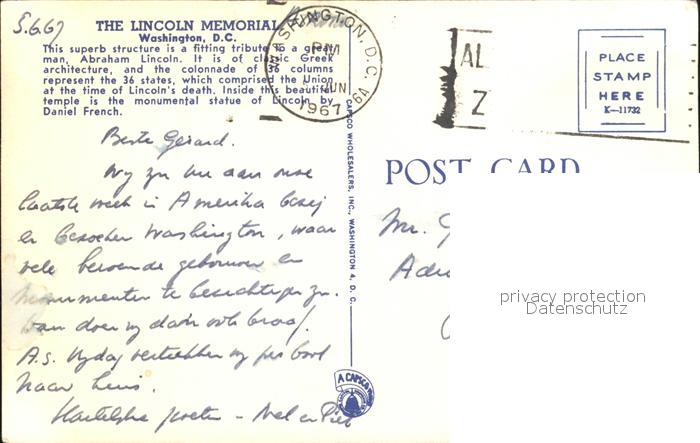 5.6.67
THE LINCOLN MEMORIAL
Washington, D.C.
This superb structure is a fitting tribute to a great
man, Abraham Lincoln. It is of classic Greek
architecture, and the colonnade of 36 columns
represent the 36 states, which comprised the Union
at the time of Lincoln's death. Inside this beautiful
temple is the monumental statue of Lincoln by
Daniel French.
WASHINGTON, D.C.
PM
JUN
1967
6A
AL
Z
PLACE
STAMP
HERE
K-11732
CAPSCO WHOLESALERS, INC., WASHINGTON 4, D.C.
POST CARD
Beste Gerard.
Wy zyn nu aan onze
laatste week in Amerika bezig
en bezoeken Washington, waar
vele beroemde gebouwen en
monumenten te bezichtigen zyn.
Dan doen wy dan ook braaf.
A.s. vrydag vertrekken wy per boot
naar huis.
Hartelyke groeten - Nel en Piet
Mr. G
privacy protection
Datenschutz
A CAPSCO